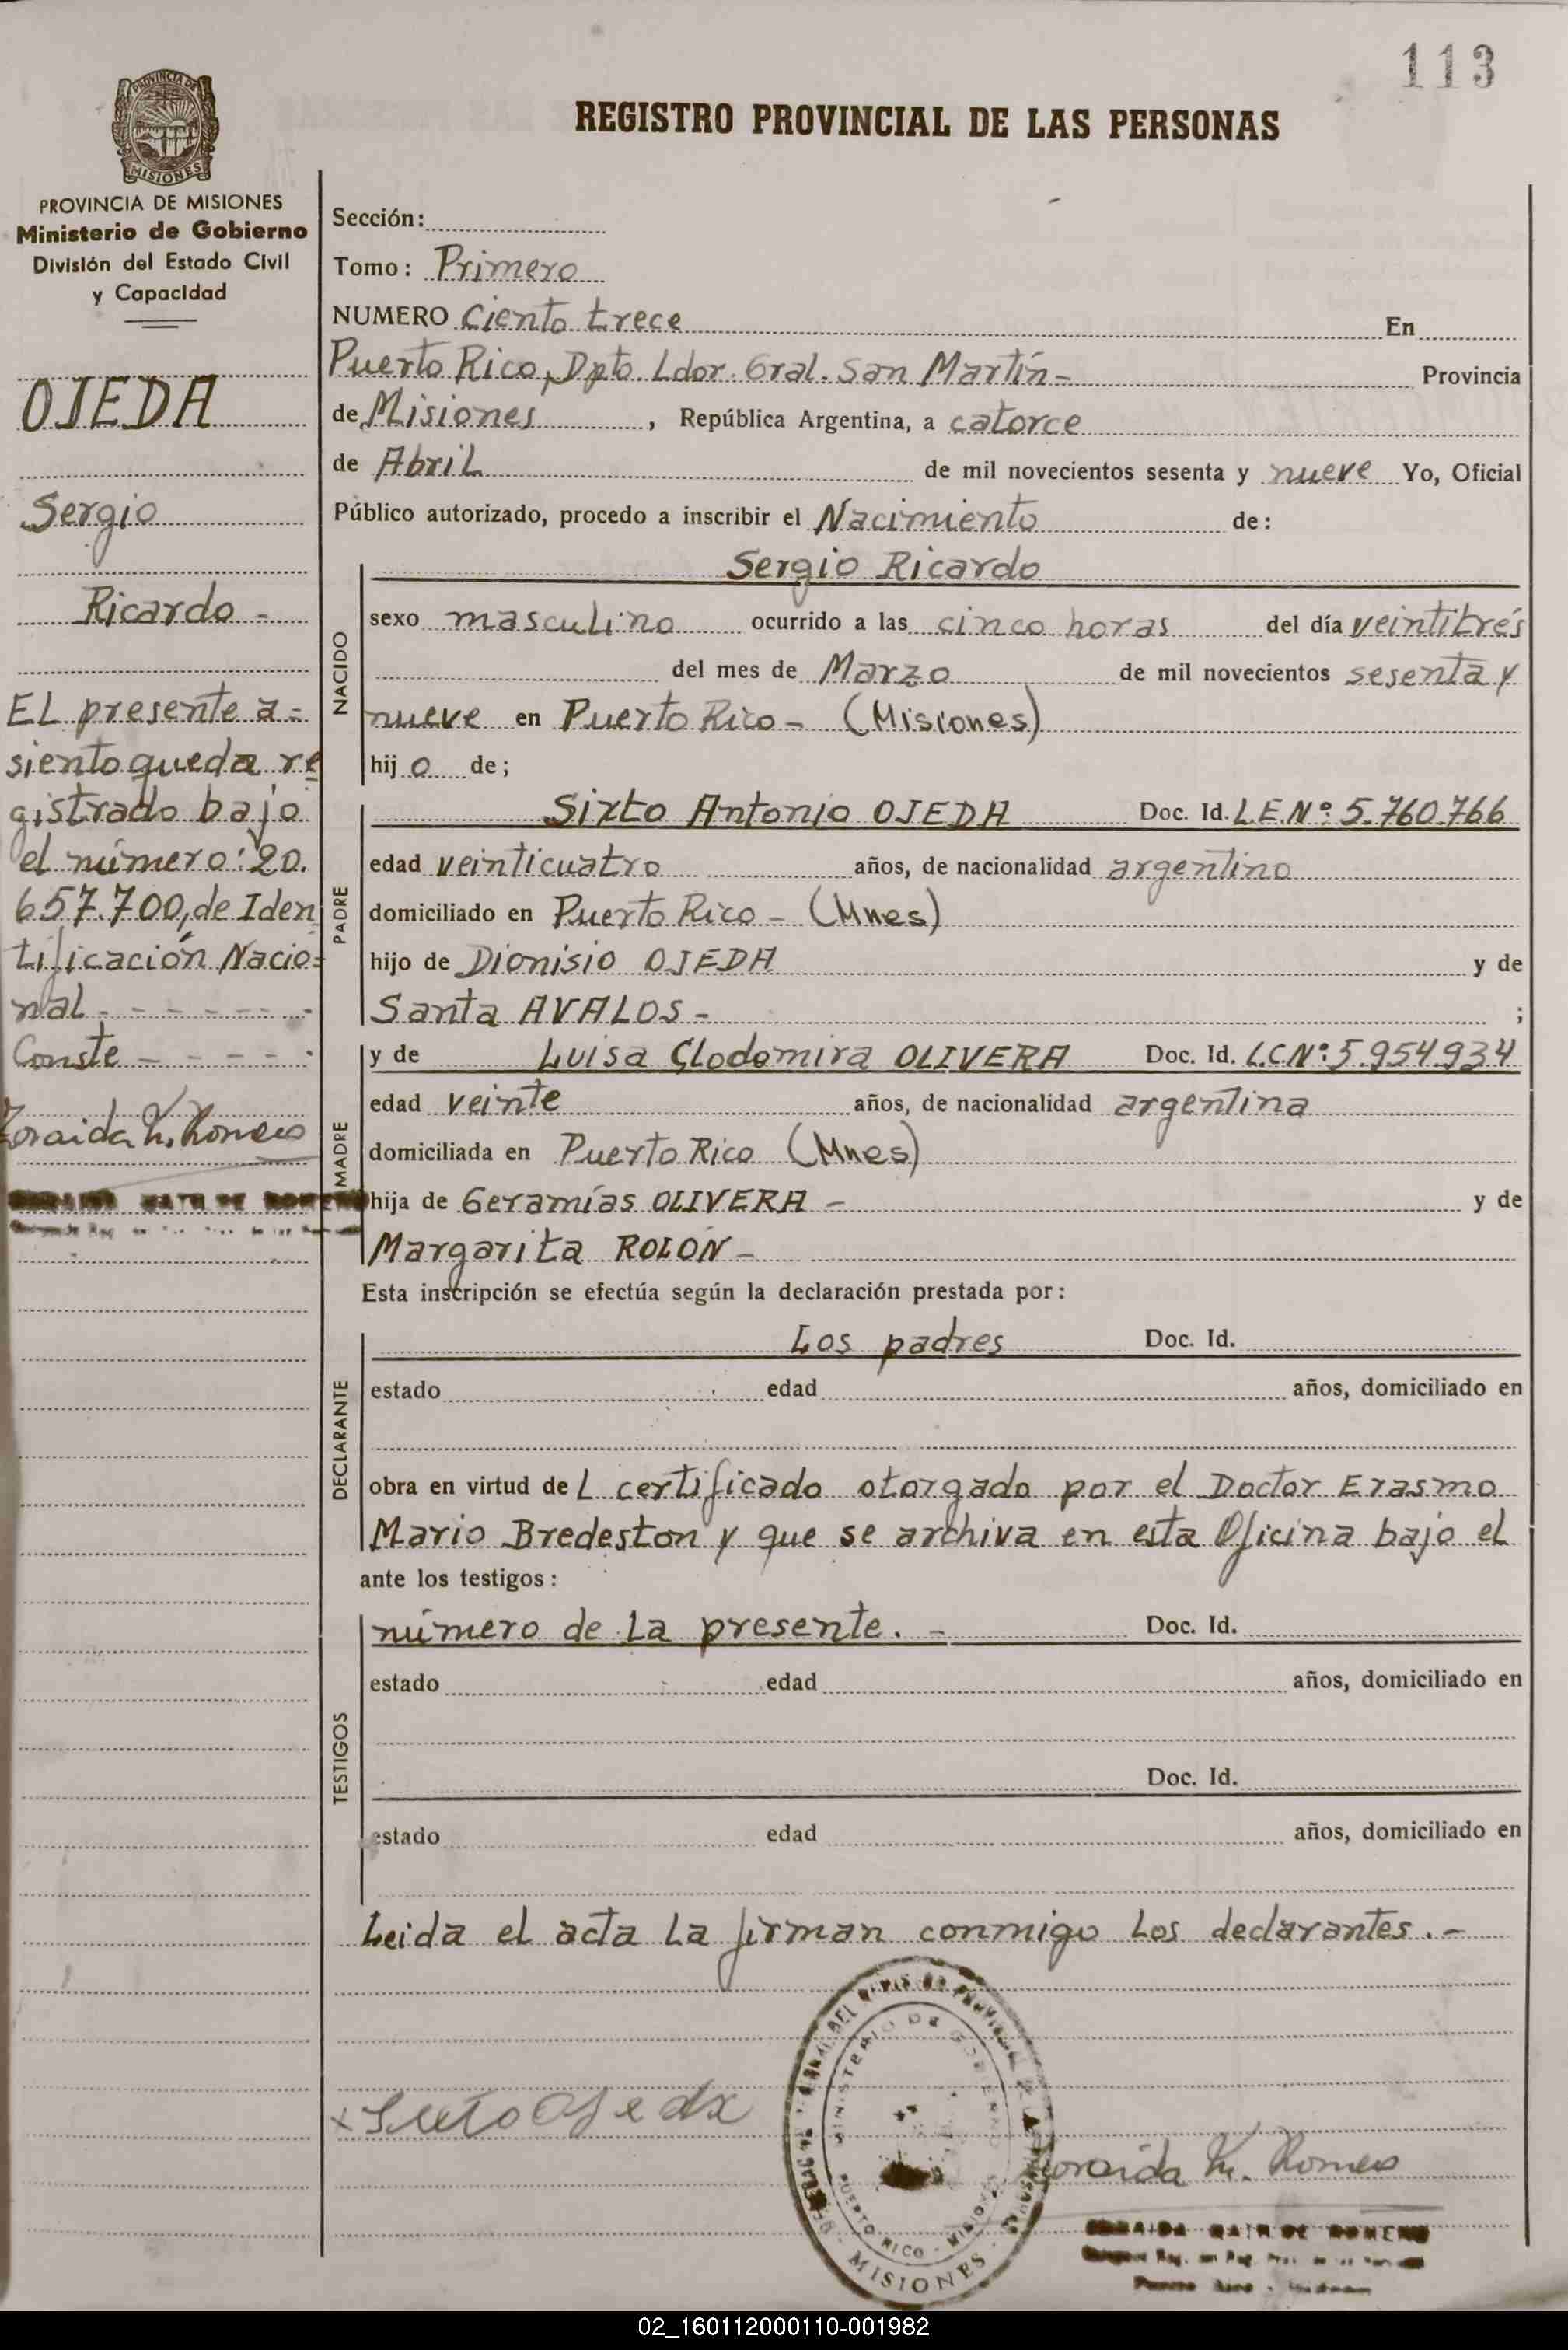 113
REGISTRO PROVINCIAL DE LAS PERSONAS
PROVINCIA DE MISIONES
MISIONES
PROVINCIA DE MISIONES
Ministerio de Gobierno
División del Estado Civil
y Capacidad
OJEDA
Sergio
Ricardo -
EL presente a=
siento queda re
gistrado bajo
el número: 20.
657.700, de Iden
tificación Nacio=
nal - - - - - - -
Conste - - - - -
Zoraida K. Romero
Sección:
Tomo: Primero
NUMERO Ciento trece En
Puerto Rico, Dpto. Ldor. Gral. San Martín- Provincia
de Misiones, República Argentina, a catorce
de Abril de mil novecientos sesenta y nueve Yo, Oficial
Público autorizado, procedo a inscribir el Nacimiento de:
Sergio Ricardo
NACIDO
sexo masculino ocurrido a las cinco horas del día veintitrés
del mes de Marzo de mil novecientos sesenta y
nueve en Puerto Rico - (Misiones)
hijo de;
Sixto Antonio OJEDA Doc. Id. L.E.Nº: 5.760.766
PADRE
edad veinticuatro años, de nacionalidad argentino
domiciliado en Puerto Rico - (Mnes)
hijo de Dionisio OJEDA y de
Santa AVALOS - ;
y de Luisa Clodomira OLIVERA Doc. Id. L.C.Nº: 5.954.934
MADRE
edad veinte años, de nacionalidad argentina
domiciliada en Puerto Rico (Mnes)
hija de Geramías OLIVERA - y de
Margarita ROLÓN -
Esta inscripción se efectúa según la declaración prestada por:
Los padres Doc. Id.
DECLARANTE
estado edad años, domiciliado en
obra en virtud de L certificado otorgado por el Doctor Erasmo
Mario Bredeston y que se archiva en esta Oficina bajo el
ante los testigos:
número de La presente. - Doc. Id.
TESTIGOS
estado edad años, domiciliado en
Doc. Id.
estado edad años, domiciliado en
Leida el acta La firman conmigo Los declarantes. -
x Sixto Ojeda
MINISTERIO DE GOBIERNO
PUERTO RICO - MISIONES
MISIONES
Zoraida K. Romero
02_160112000110-001982